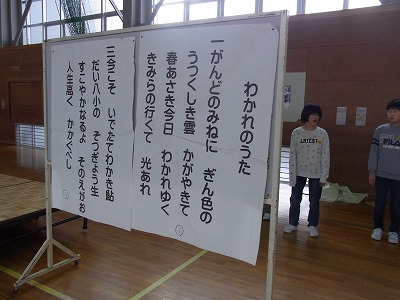 わかれのうた
一がんどのみねに ぎん色の
うつくしき雲 かがやきて
春あさき今日 わかれゆく
きみらの行くて 光あれ
1
三今こそ いでたてわかき鮎
だい八小の そつぎょう生
すこやかなるよ そのえがお
人生高く かかぐべし
LATEST